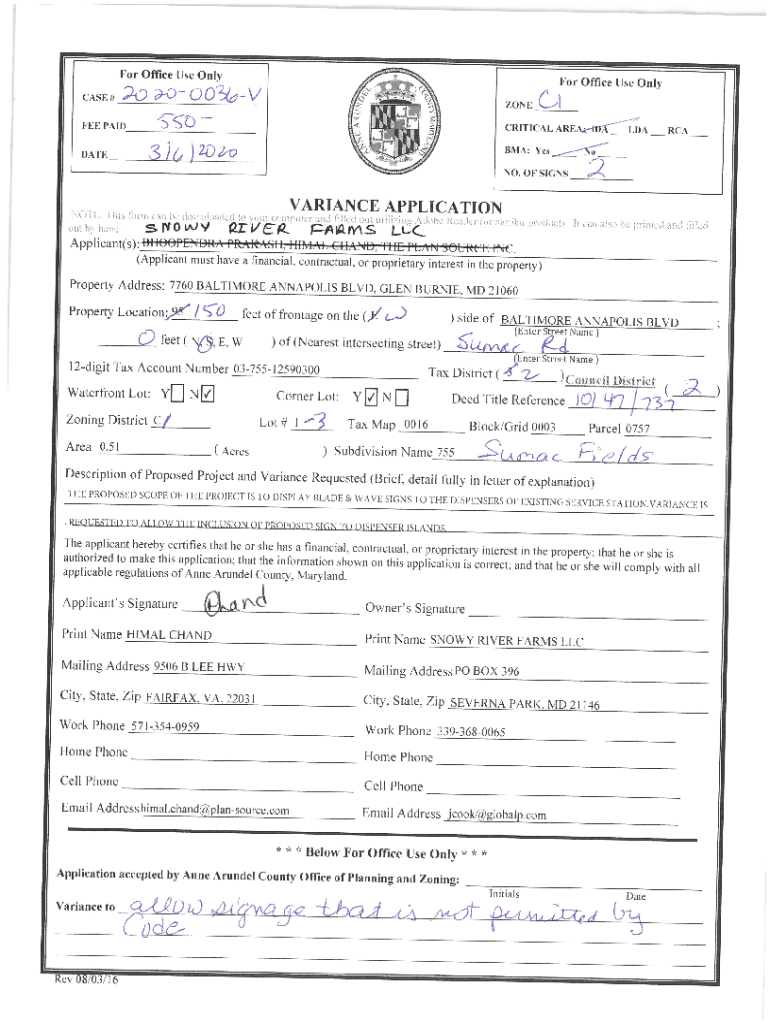 For Office Use Only
CASE # 2020-0036-V
FEE PAID 550-
DATE 3/6/2020
ANNE ARUNDEL COUNTY, MARYLAND
For Office Use Only
ZONE C1
CRITICAL AREA: IDA LDA RCA
BMA: Yes No
NO. OF SIGNS 2
VARIANCE APPLICATION
NOTE: This form can be downloaded to your computer and filled out utilizing Adobe Reader or similar products. It can also be printed and filled
out by hand.
SNOWY RIVER FARMS LLC
Applicant(s): BHOOPENDRA PRAKASH, HIMAL CHAND, THE PLAN SOURCE INC.
(Applicant must have a financial, contractual, or proprietary interest in the property)
Property Address: 7760 BALTIMORE ANNAPOLIS BLVD, GLEN BURNIE, MD 21060
Property Location: 150 feet of frontage on the ( W ) side of BALTIMORE ANNAPOLIS BLVD ;
(Enter Street Name )
0 feet ( N, S, E, W ) of (Nearest intersecting street) Sumac Rd
(Enter Street Name )
12-digit Tax Account Number 03-755-12590300 Tax District ( 2 ) Council District ( 2 )
Waterfront Lot: Y N ✓ Corner Lot: Y ✓ N Deed Title Reference 10147/737
Zoning District C1 Lot # 1-3 Tax Map 0016 Block/Grid 0003 Parcel 0757
Area 0.51 ( Acres ) Subdivision Name 755 Sumac Fields
Description of Proposed Project and Variance Requested (Brief, detail fully in letter of explanation)
THE PROPOSED SCOPE OF THE PROJECT IS TO DISPLAY BLADE & WAVE SIGNS TO THE DISPENSERS OF EXISTING SERVICE STATION.VARIANCE IS
. REQUESTED TO ALLOW THE INCLUSION OF PROPOSED SIGN TO DISPENSER ISLANDS.
The applicant hereby certifies that he or she has a financial, contractual, or proprietary interest in the property; that he or she is
authorized to make this application; that the information shown on this application is correct; and that he or she will comply with all
applicable regulations of Anne Arundel County, Maryland.
Applicant's Signature Chand Owner's Signature
Print Name HIMAL CHAND Print Name SNOWY RIVER FARMS LLC
Mailing Address 9506 B LEE HWY Mailing Address PO BOX 396
City, State, Zip FAIRFAX, VA, 22031 City, State, Zip SEVERNA PARK, MD 21146
Work Phone 571-354-0959 Work Phone 339-368-0065
Home Phone Home Phone
Cell Phone Cell Phone
Email Address himal.chand@plan-source.com Email Address jcook@globalp.com
* * * Below For Office Use Only * * *
Application accepted by Anne Arundel County Office of Planning and Zoning:
Initials Date
Variance to allow signage that is not permitted by
Code
Rev 08/03/16